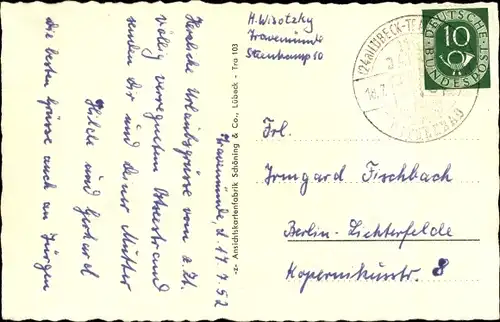 H. Wisotzky
Travemünde
Steenkamp 10
(24a) LÜBECK-TRAVEMÜNDE
18.7.
DEUTSCHE
BUNDESPOST
10
Frl.
Irmgard Fischbach
Berlin-Lichterfelde
Kopernikusstr. 8
-z- Ansichtskartenfabrik Schöning & Co., Lübeck - Tra 103
Travemünde, d. 17.7.52
Herzliche Urlaubsgrüsse vom z. Zt.
völlig verregneten Ostseestrand
senden Dir und Deiner Mutter
Hilde und Gerhard
Die besten Grüsse auch an Jürgen